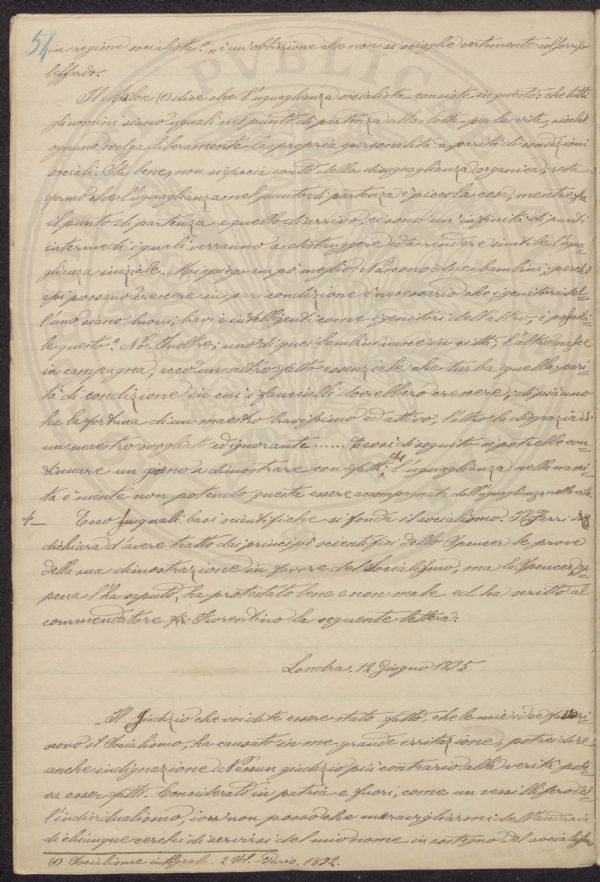 54
in regime socialista? „ è un'obbiezione che non si scioglie certamente col sorriso
beffardo.
Il Malon (1) dice che l'uguaglianza socialista consiste in questo: che tutti
gli uomini siano uguali nel punto di partenza alla lotta per la vita, sicchè
ognuno svolga liberamente la propria personalità a parità di condizioni
sociali. Sta bene, non si faccia conto della disuguaglianza organica, resta
fermo che l'uguaglianza nel punto di partenza è piccola cosa, mentre fra
il punto di partenza e quello di arrivo, ci sono un'infinità di punti
intermedi i quali verranno a distruggere ed a rendere inutile l'ugua-
glianza iniziale. Mi spiego un pò meglio. Nascono due bambini; perchè
essi possano crescere in pari condizione è necessario che i genitori del-
l'uno siano buoni, bravi e intelligenti come i genitori dell'altro, è possibi-
le questo? No. Inoltre; uno di quei bambini nasce in città, l'altro nasce
in campagna; ecco un altro fatto essenziale che turba quella pari-
tà di condizione in cui i fanciulli dovrebbero crescere; di più uno
ha la fortuna di un maestro bravissimo ed attivo, l'altro la disgrazia di
un maestro svogliato ed ignorante ...... E così di seguito si potrebbe con-
tinuare un giorno a dimostrare con fatti che l'uguaglianza nella nasci-
ta è niente non potendo questa essere accompagnata dall'uguaglianza nella vita.
Ecco su quali basi scientifiche si fonda il socialismo. Il Ferri
dichiara d'avere tratto dai principî scientifici dello Spencer le prove
della sua dimostrazione in favore del Socialismo, ma lo Spencer ap-
pena l'ha saputo, ha protestato bene e non male ed ha scritto al
commendatore Fiorentino la seguente lettera:
Londra, 12 Giugno 1895
„Il giudizio che voi dite essere stato fatto, che le mie idee favori-
scono il Socialismo, ha causato in me grande irritazione, potrei dire
anche indignazione. Nessun giudizio più contrario alla verità pote-
va esser fatto. Considerato in patria e fuori, come un vessillifero del-
l'individualismo, io non posso che meravigliarmi dell'audacia
di chiunque cerchi di servirsi del mio nome in sostegno del socialismo
(1) Socialisme intégral. 2 Vol. Paris. 1892.